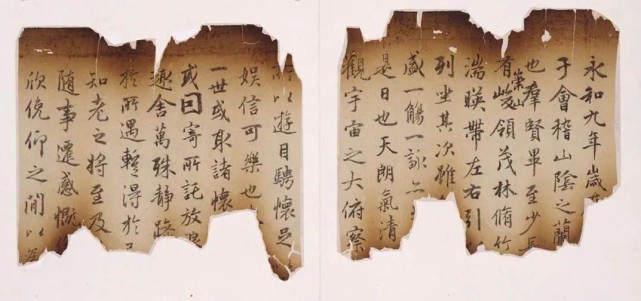 永和九年歲
于會稽山陰之蘭
也羣賢畢至少長
有崇山峻領茂林脩竹
湍暎帶左右引
列坐其次雖
盛一觴一詠亦
是日也天朗氣清
觀宇宙之大俯察
所以遊目騁懷足
娛信可樂也
一世或取諸懷
或因寄所託放浪
趣舍萬殊靜躁
於所遇蹔得於
知老之將至及
隨事遷感慨
欣俛仰之閒以